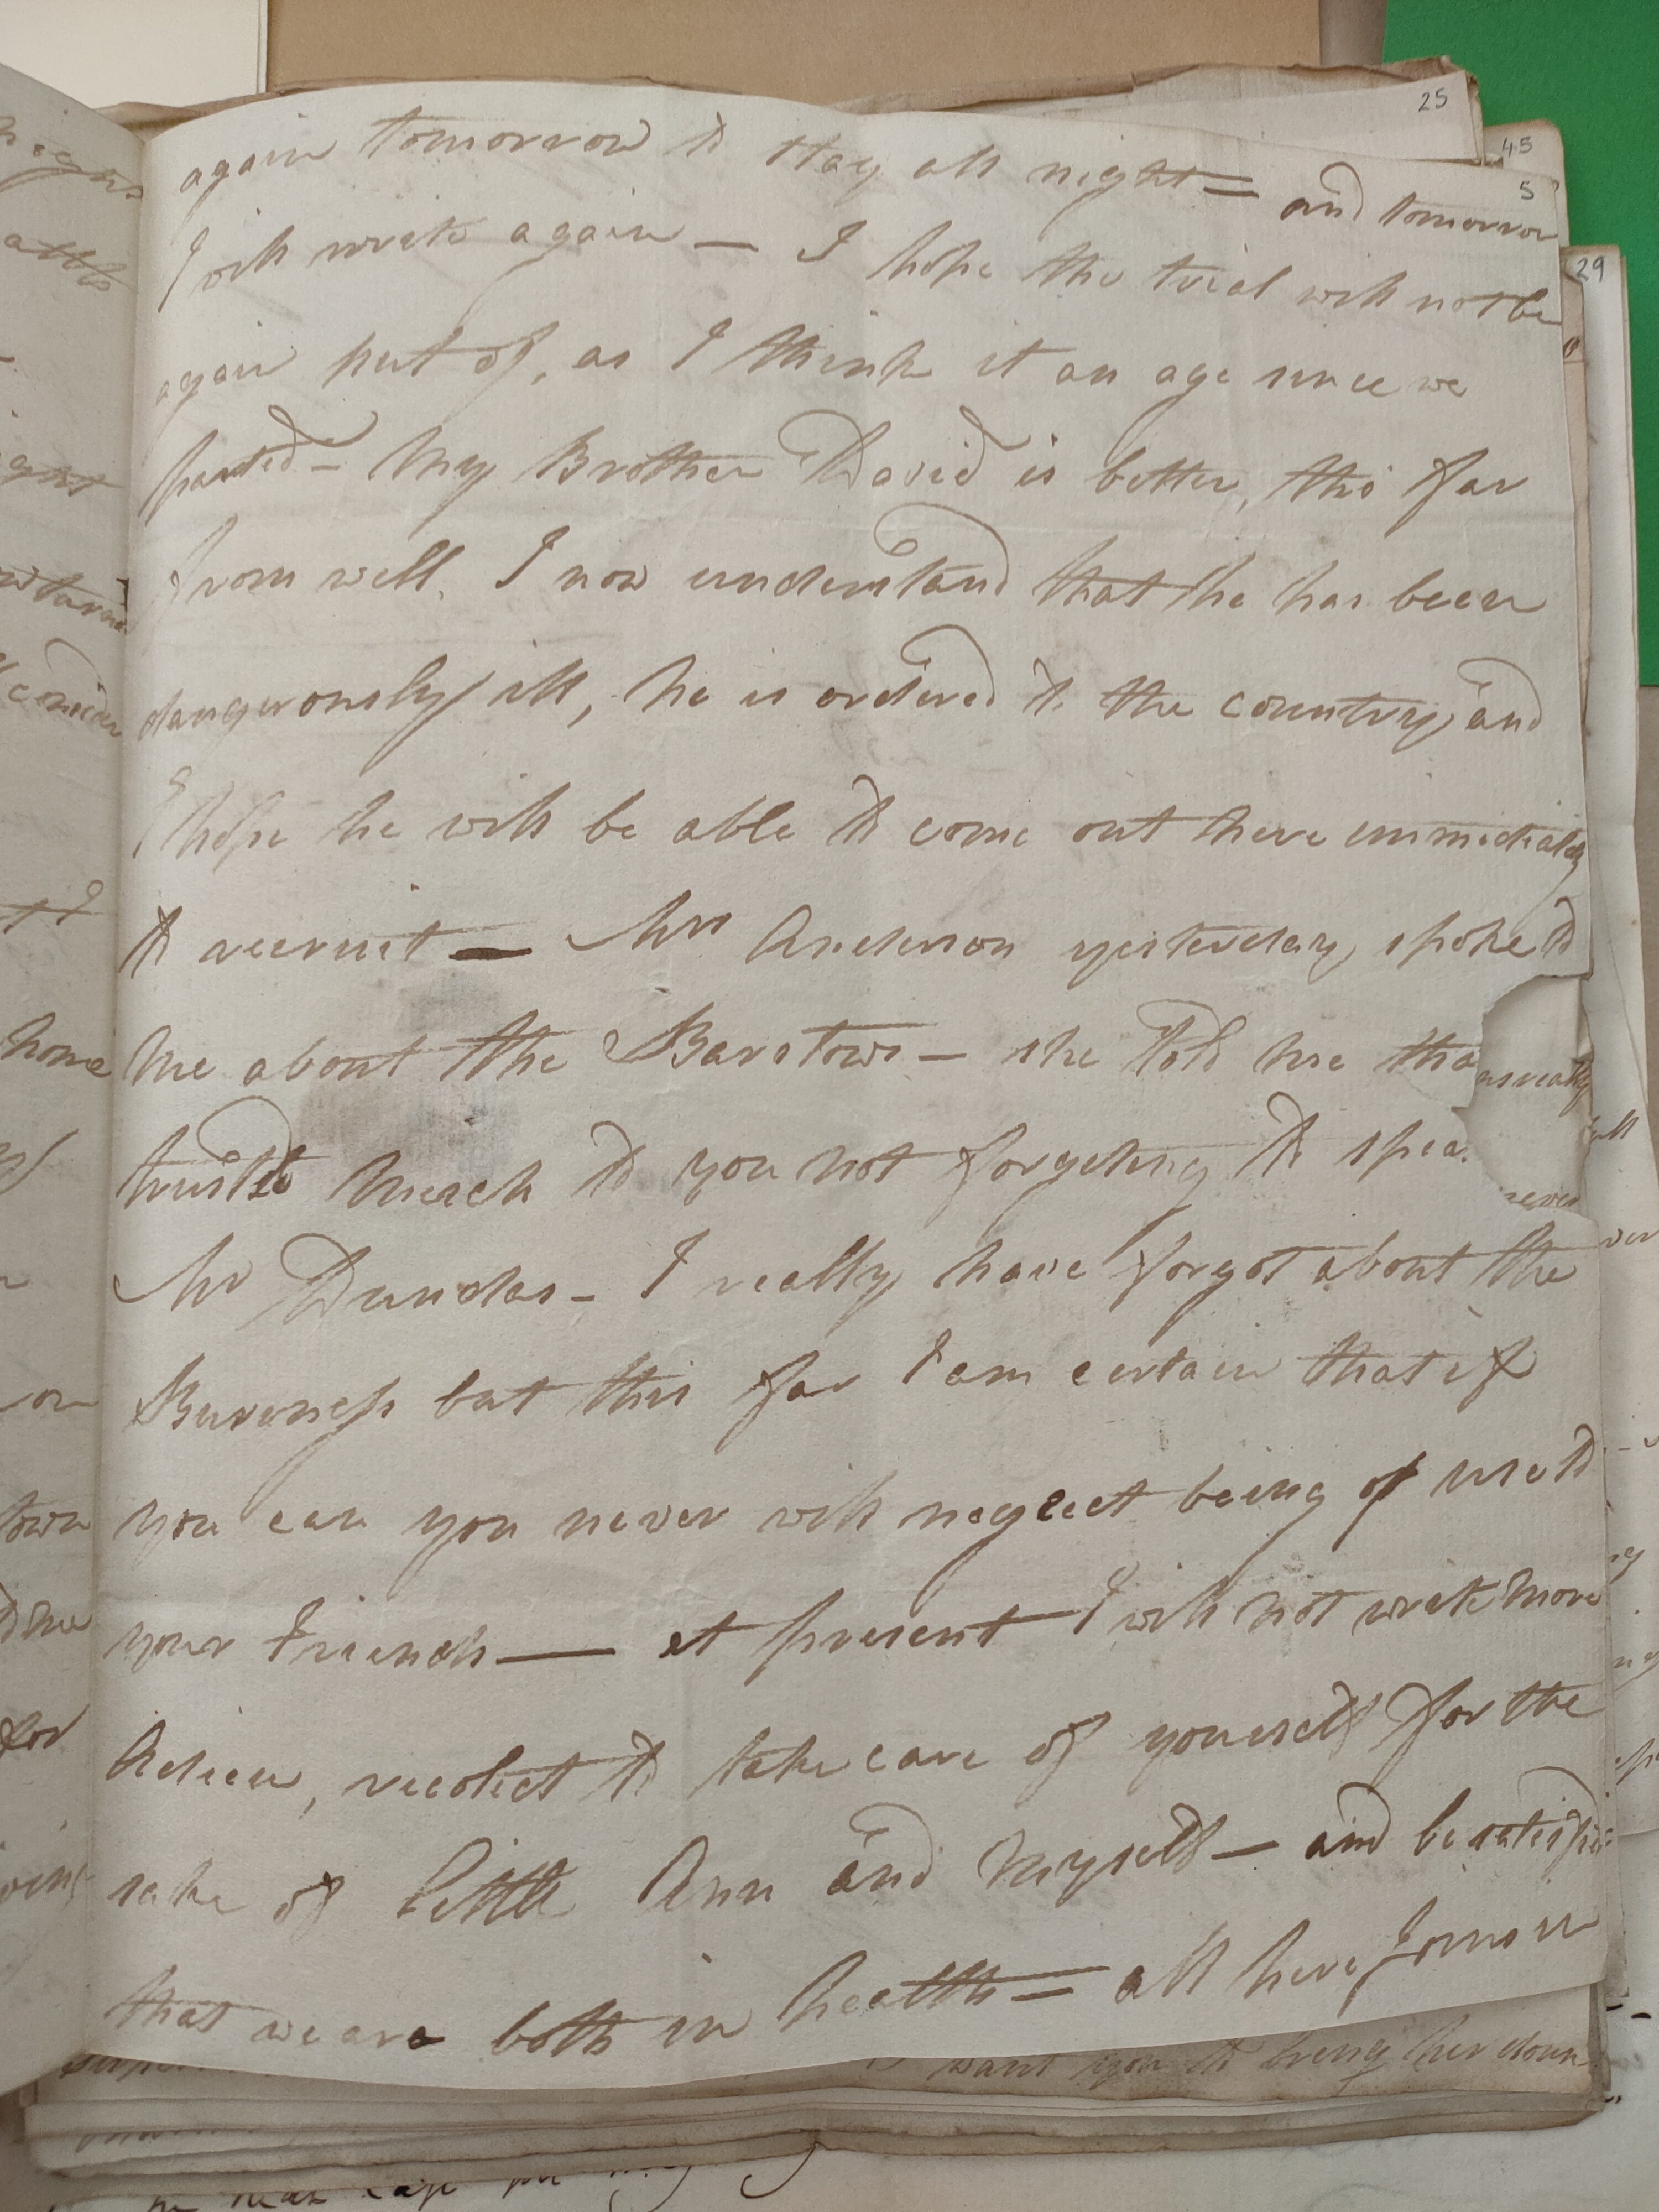 25
45
5
29
again tomorrow to stay all night = and tomorrow
I will write again — I hope the trial will not be
again put of, as I think it an age since we
parted — My Brother David is better, tho far
from well. I now understand that he has been
dangerously ill, he is ordered to the country, and
I hope he will be able to come out here immediately
to recruit — Mrs Anderson yesterday spoke to
me about the Barstows — she told me tha
trusted much to you not forgeting to spea
Mr Dundas — I really have forgot about the
Buseness but this far I am certain that if
you can you never will neglect being of use to
your Friends — at present I will not write more
Adieu, recolect to take care of yourself for the
sake of little Ann and myself — and be satisfied
that we are both in health = all here
want you to bring her down